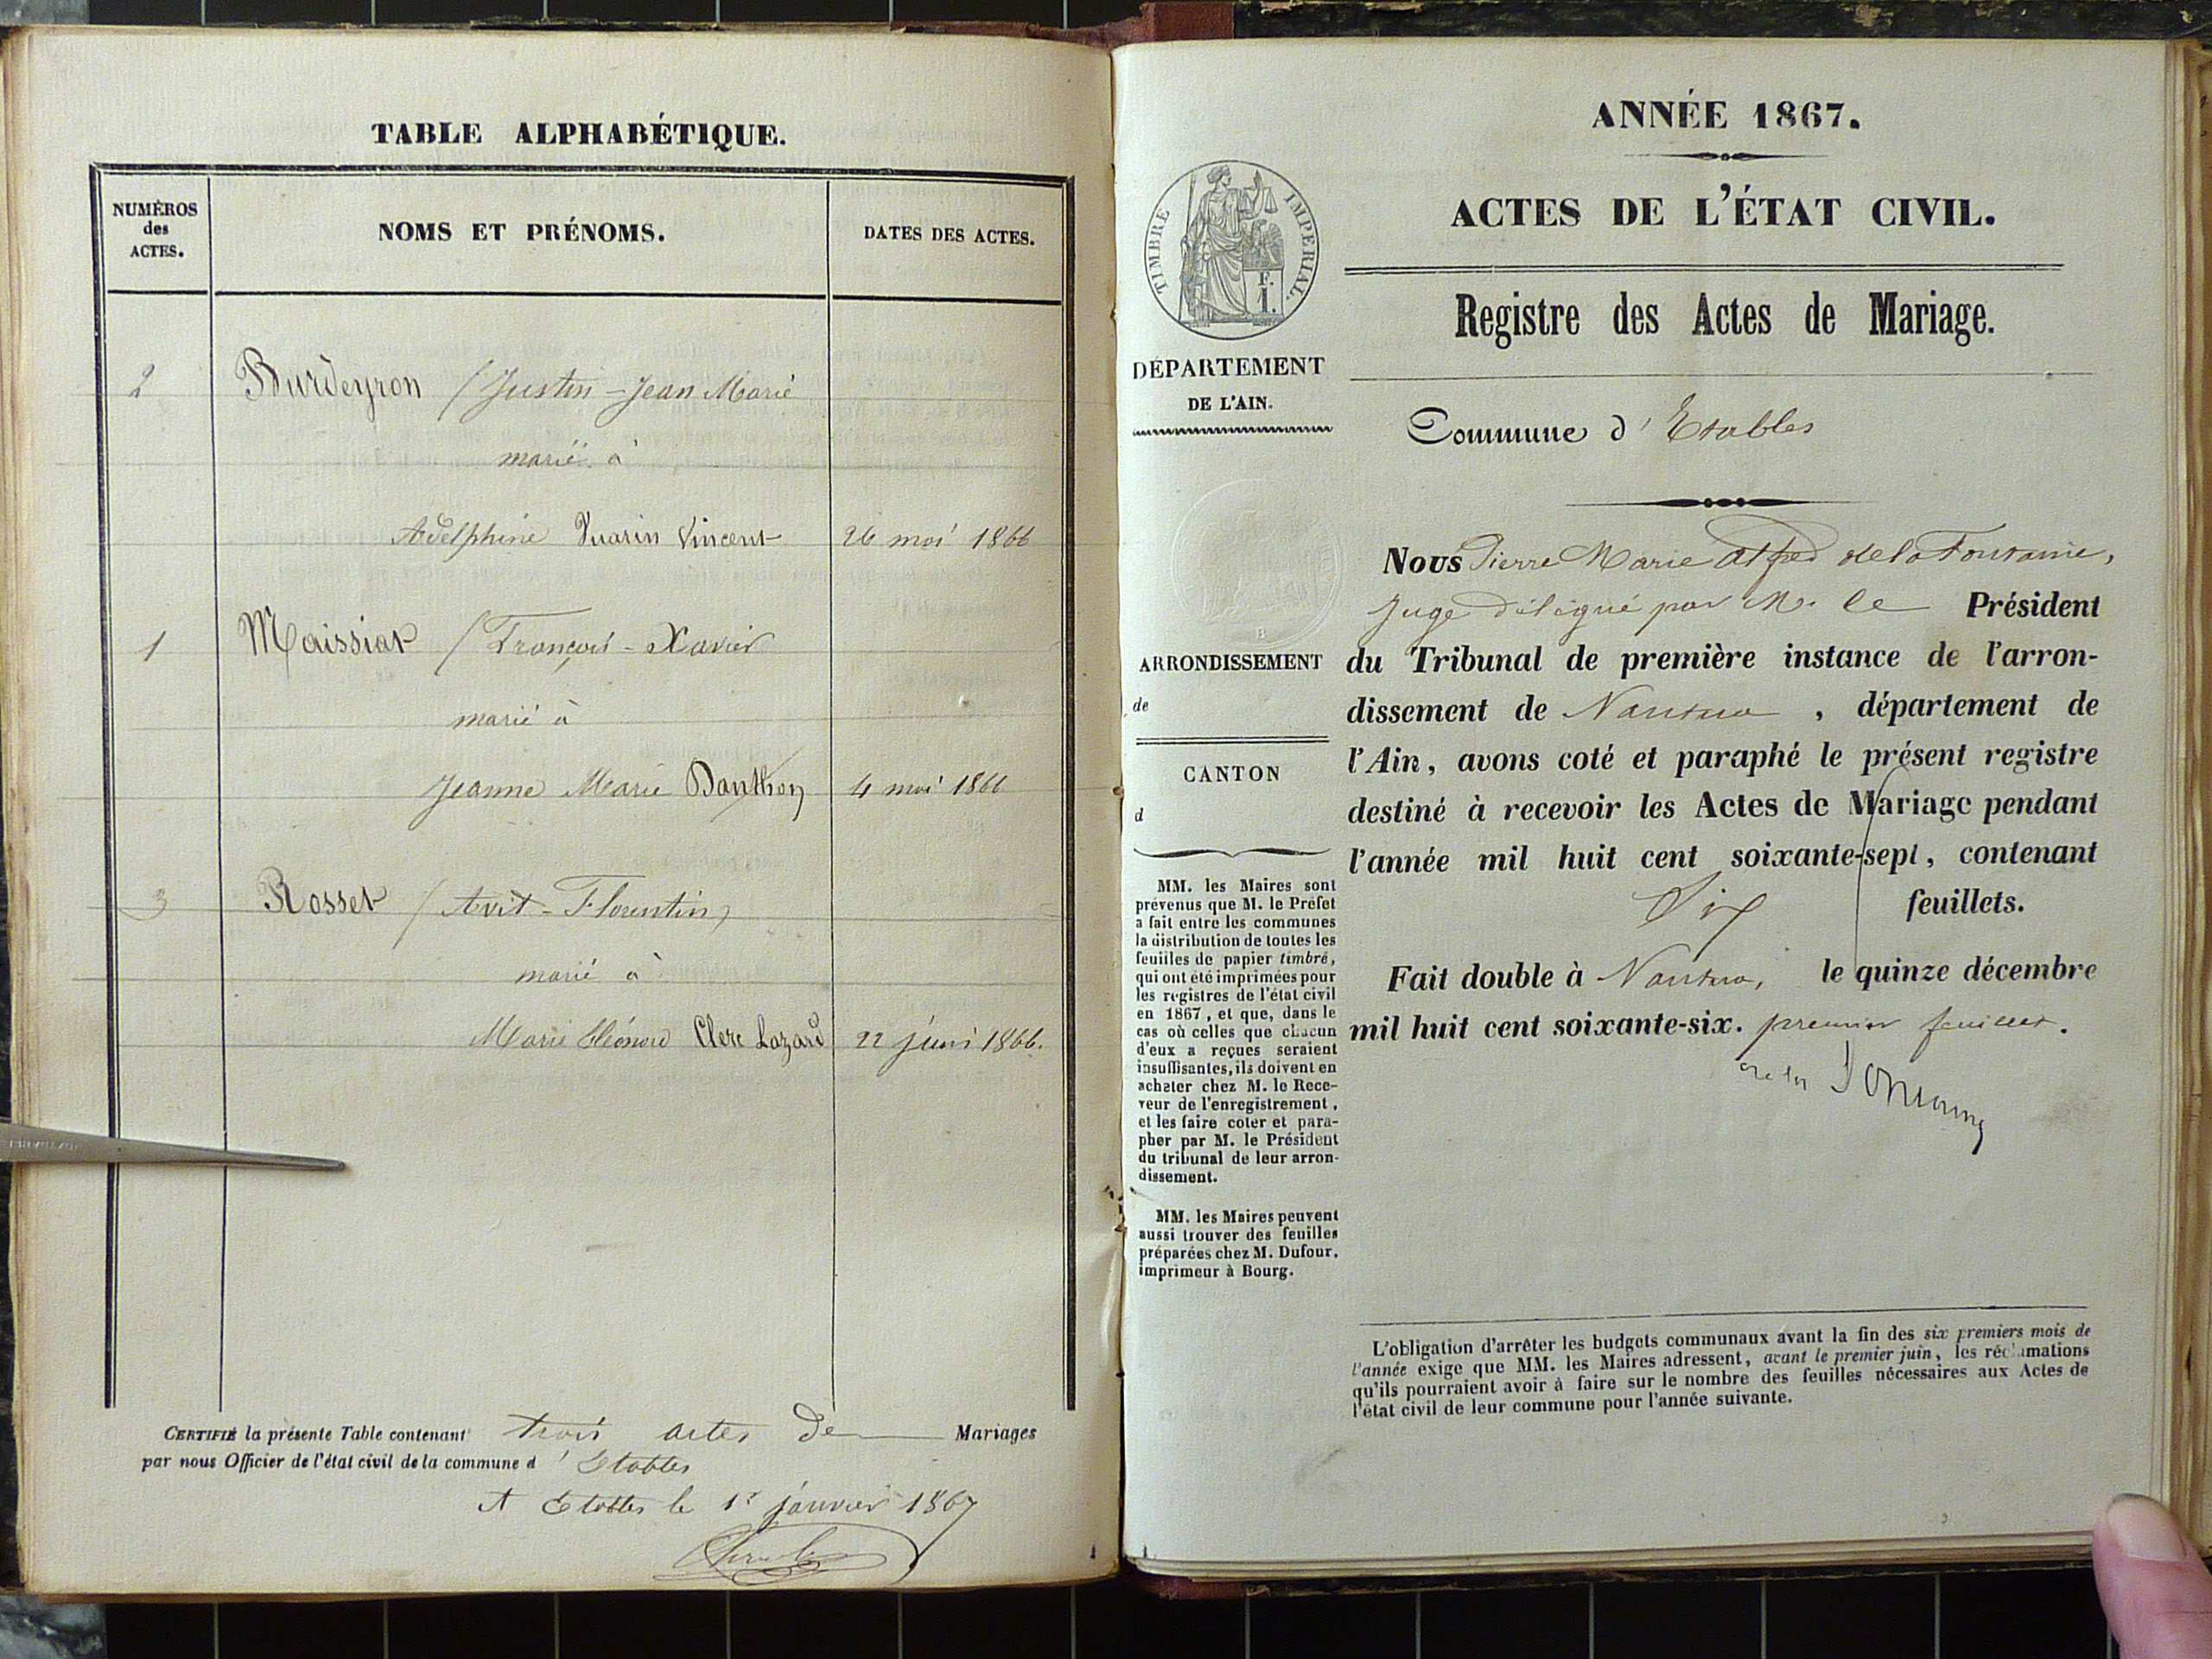 TABLE ALPHABÉTIQUE.
NUMÉROS
des
ACTES.
NOMS ET PRÉNOMS.
DATES DES ACTES.
2 Burdeyron / Justin - Jean Marie
marié à
Adelphine Vuarin Vincent 26 mai 1866
1 Maissiat / François - Xavier
marié à
Jeanne Marie Danthon 4 mai 1866
3 Rosset / Avit - Florentin
marié à
Marie Eléonore Clerc Lazard 22 juin 1866.
CERTIFIÉ la présente Table contenant trois actes de Mariages
par nous Officier de l'état civil de la commune d' Etables
A Etables le 1er janvier 1867
ANNÉE 1867.
ACTES DE L'ÉTAT CIVIL.
Registre des Actes de Mariage.
TIMBRE IMPERIAL.
F.
1.
DÉPARTEMENT
DE L'AIN.
ARRONDISSEMENT
de
CANTON
d
MM. les Maires sont
prévenus que M. le Préfet
a fait entre les communes
la distribution de toutes les
feuilles de papier timbré,
qui ont été imprimées pour
les registres de l'état civil
en 1867, et que, dans le
cas où celles que chacun
d'eux a reçues seraient
insuffisantes, ils doivent en
acheter chez M. le Rece-
veur de l'enregistrement,
et les faire coter et para-
pher par M. le Président
du tribunal de leur arron-
dissement.
MM. les Maires peuvent
aussi trouver des feuilles
préparées chez M. Dufour,
imprimeur à Bourg.
Commune d' Etables
Nous Pierre Marie Alfred de la Fontaine,
Juge délégué par M. le Président
du Tribunal de première instance de l'arron-
dissement de Nantua, département de
l'Ain, avons coté et paraphé le présent registre
destiné à recevoir les Actes de Mariage pendant
l'année mil huit cent soixante-sept, contenant
Six feuillets.
Fait double à Nantua, le quinze décembre
mil huit cent soixante-six. premier feuillet.
L'obligation d'arrêter les budgets communaux avant la fin des six premiers mois de
l'année exige que MM. les Maires adressent, avant le premier juin, les réclamations
qu'ils pourraient avoir à faire sur le nombre des feuilles nécessaires aux Actes de
l'état civil de leur commune pour l'année suivante.